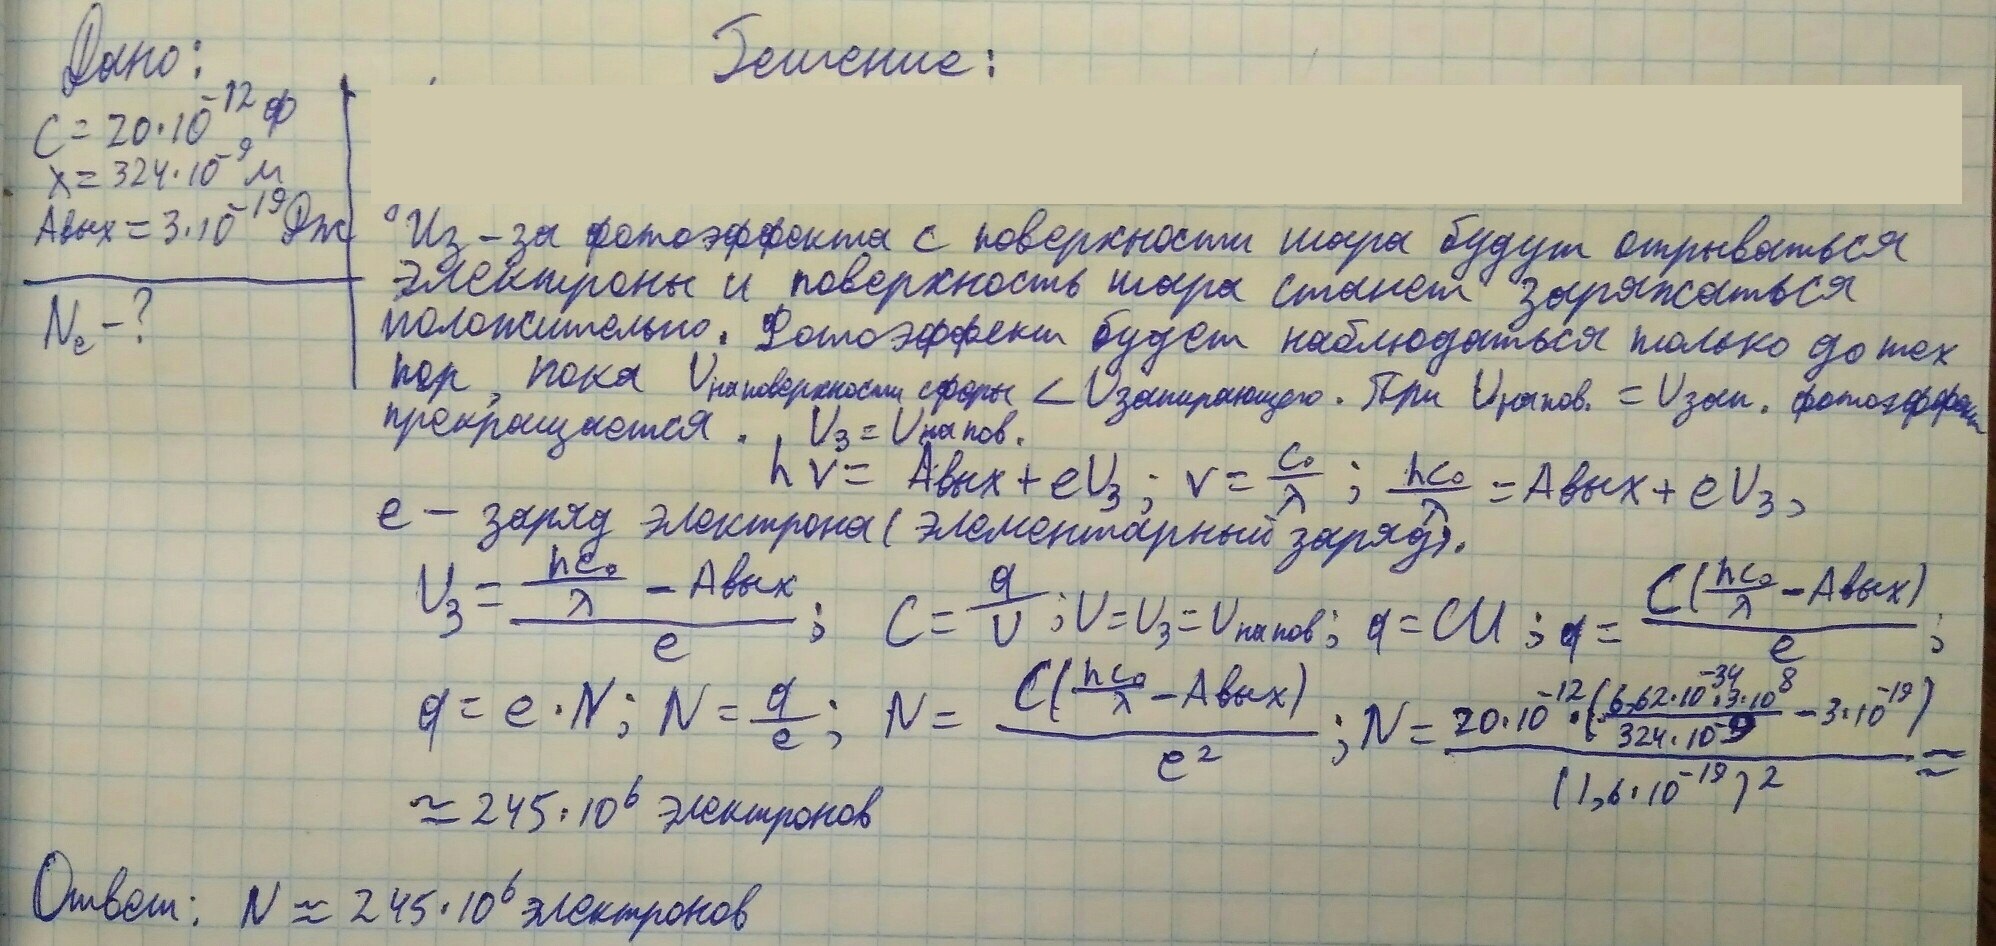 Дано:
Решение:
C = 20·10⁻¹² Ф
λ = 324·10⁻⁹ м
Aвых = 3·10⁻¹⁹ Дж
Nₑ - ?
Из-за фотоэффекта с поверхности шара будут отрываться
электроны и поверхность шара станет заряжаться
положительно. Фотоэффект будет наблюдаться только до тех
пор, пока Uна поверхности сферы < Uзапирающего. При Uна пов. = Uзап. фотоэффект
прекращается. Uз = Uна пов.
hν = Aвых + eUз; ν = c₀/λ; hc₀/λ = Aвых + eUз,
e - заряд электрона (элементарный заряд).
Uз = (hc₀/λ - Aвых)/e; C = q/U; U = Uз = Uна пов; q = CU; q = C(hc₀/λ - Aвых)/e;
q = e·N; N = q/e; N = C(hc₀/λ - Aвых)/e²; N = 20·10⁻¹²·(6,62·10⁻³⁴·3·10⁸/324·10⁻⁹ - 3·10⁻¹⁹)/(1,6·10⁻¹⁹)² ≈
≈ 245·10⁶ электронов
Ответ: N ≈ 245·10⁶ электронов